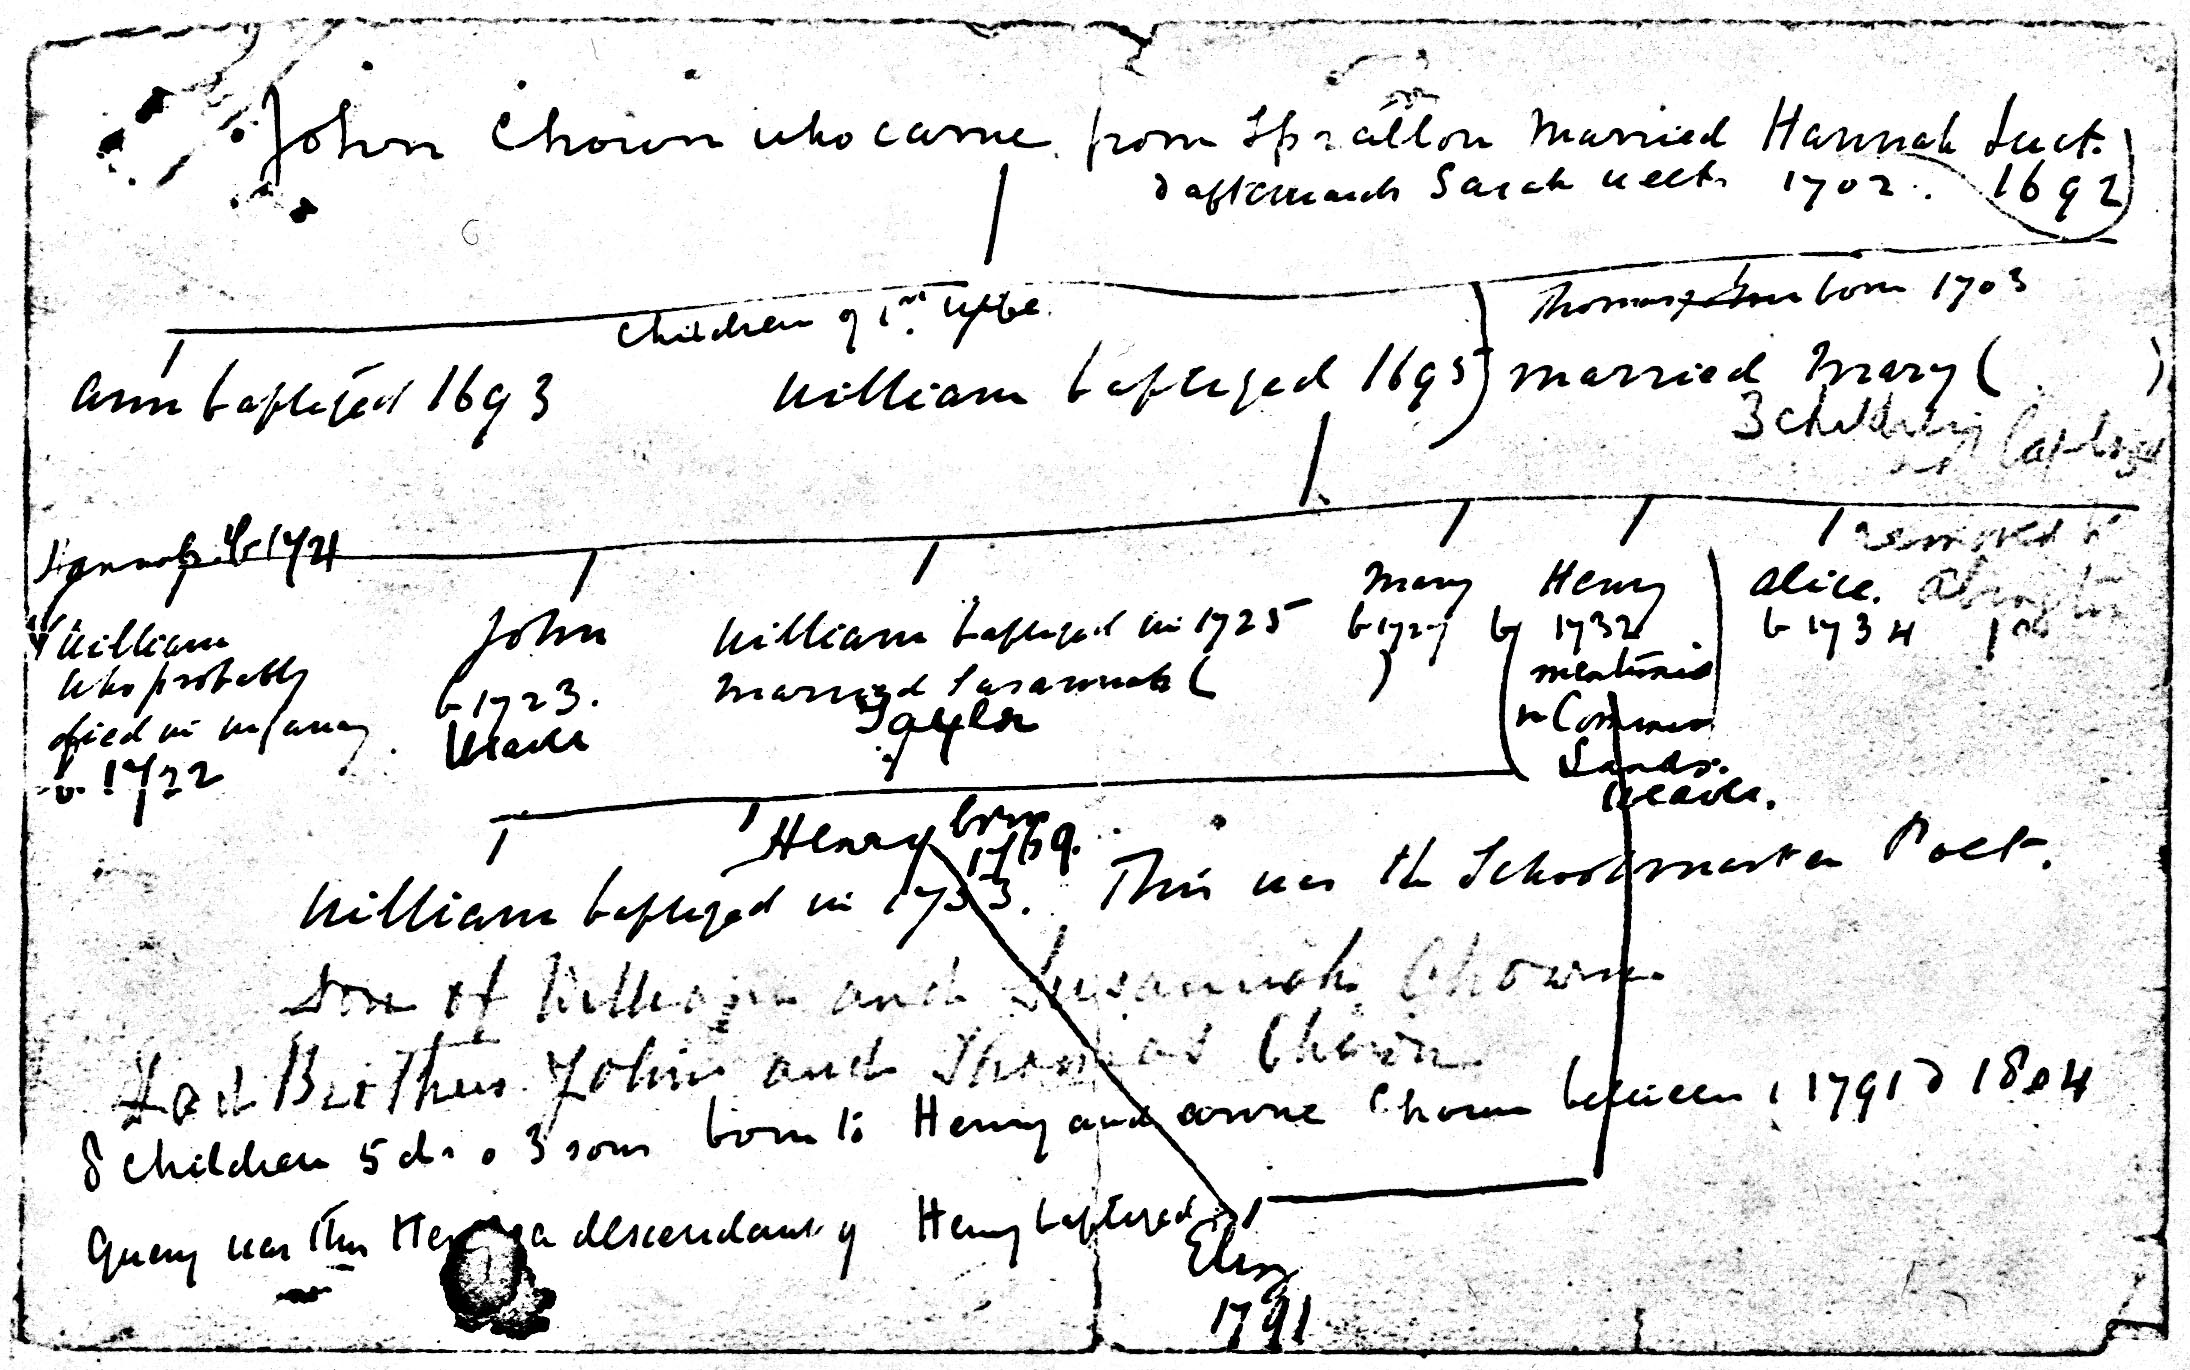 John Chown who came from Spratton Married Hannah Luct.
& afterwards Sarah 1702. 1692
Thomas born 1703
Children of 1st Wife.
Ann baptized 1693 William baptized 1695 married Mary ( )
3 children
baptized
removed to
Hannah b 1721
Mary Henry Alice. Abington
William John William baptized in 1725 b 1727 b 1732 b 1734
who probably b 1723. married Susannah ( ) mentioned
died in infancy. Weaver Taylor in Common
b. 1722 Lands.
Weaver.
Henry born
1769.
William baptized in 1753. This was the Schoolmaster Poet.
Son of William and Susannah Chown
Had Brothers John and Thomas Chown
8 children 5 ds & 3 sons born to Henry and Anne Chown between 1791 & 1804
Query was this Henry a descendant of Henry baptized
Eliz
1791